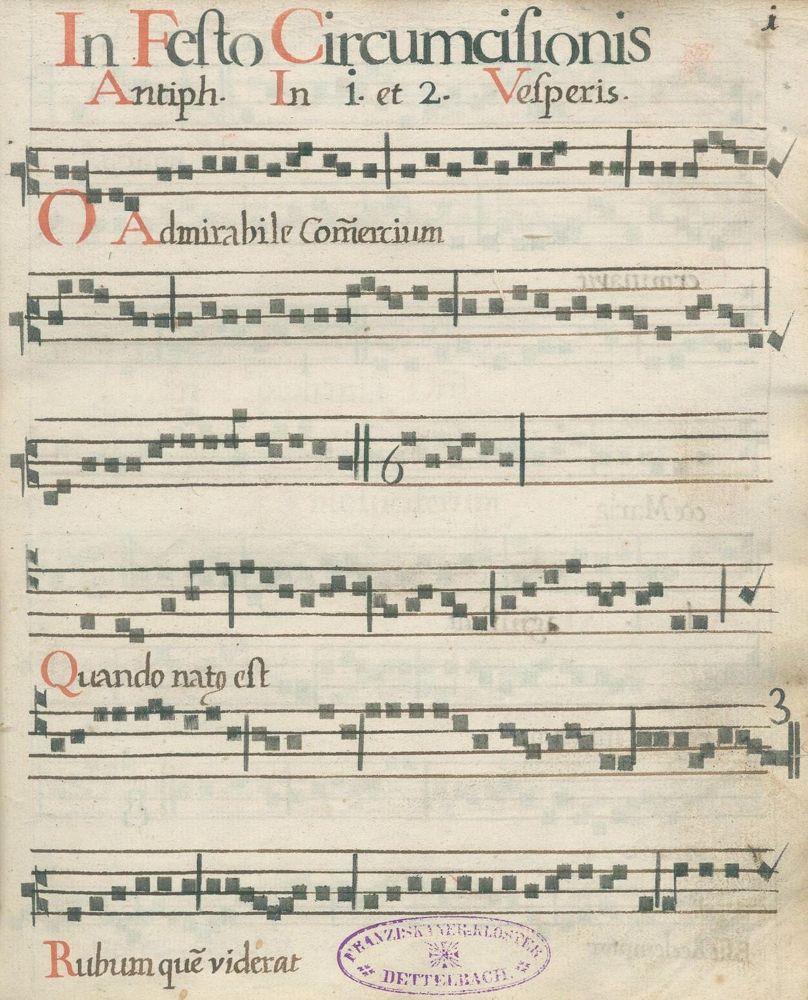 i
In Festo Circumcisionis
Antiph. In 1. et 2. Vesperis.
O Admirabile Com̃ercium
6
Quando natꝯ est
3
Rubum quē viderat
FRANZISKANER-KLOSTER
DETTELBACH.